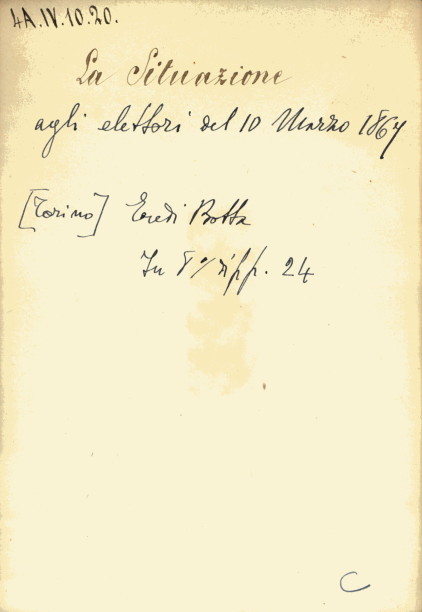 4A.IV.10.20.
La Situazione
agli elettori del 10 Marzo 1867
[Torino] Eredi Botta
In 8º di pp. 24
C